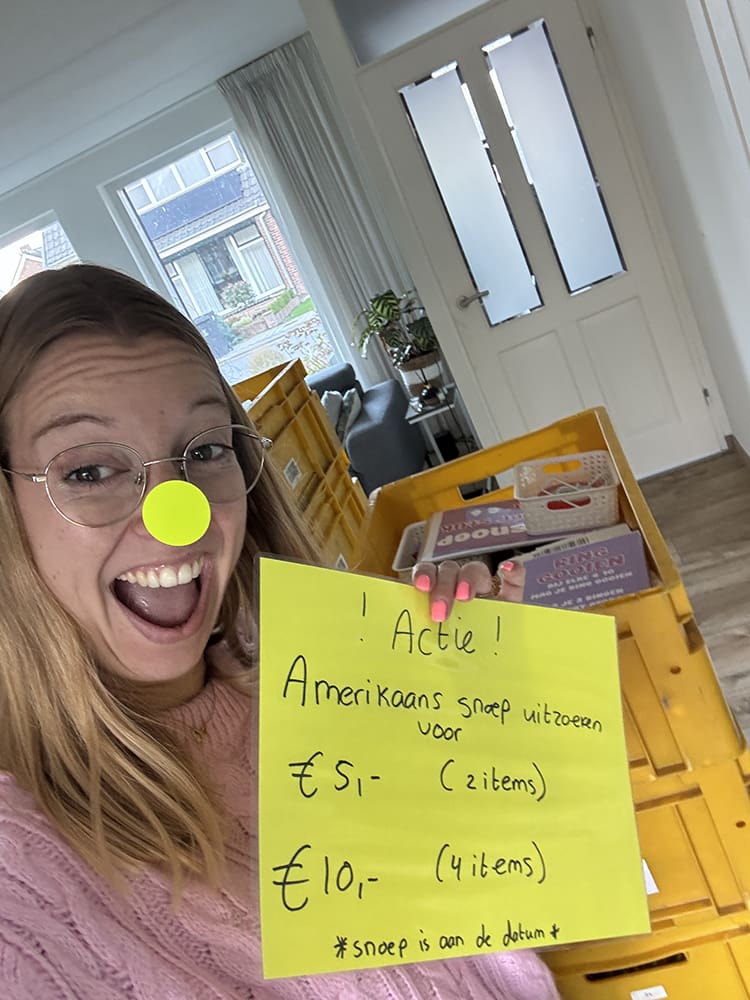 ! Actie !
Amerikaans snoep uitzoeken
voor
€ 5,- (2 items)
€ 10,- (4 items)
*snoep is aan de datum*
snoep
RING
GOOIEN
BIJ ELKE € 10
MAG JE RING GOOIEN
JE 3 RINGEN